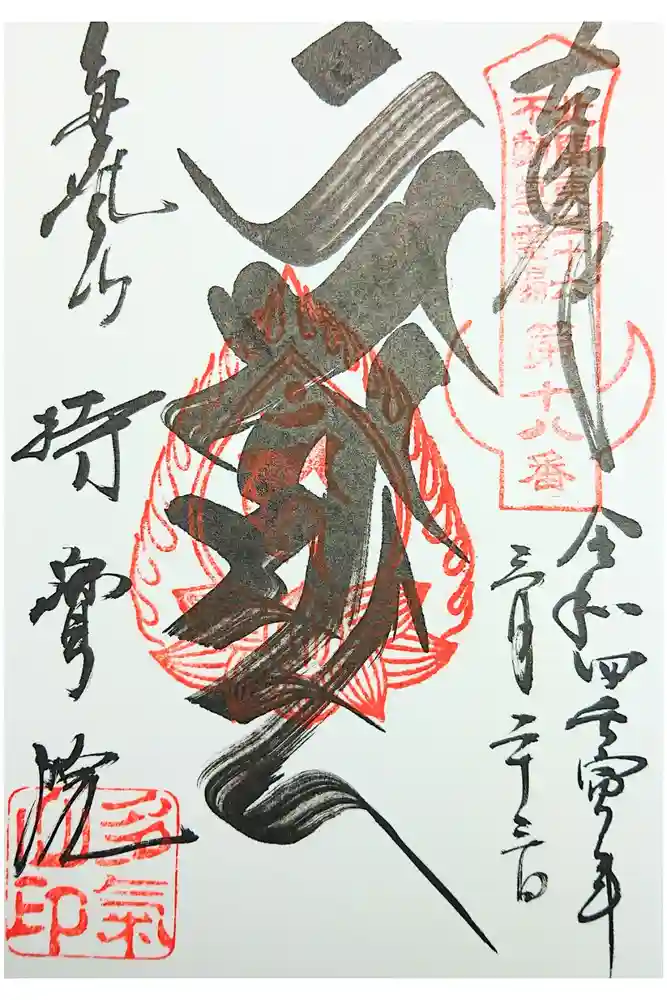 奉拝
北関東三十六
不動尊霊場
第十八番
令和四壬寅年
三月二十三日
多氣山
持寳院
多氣
山印